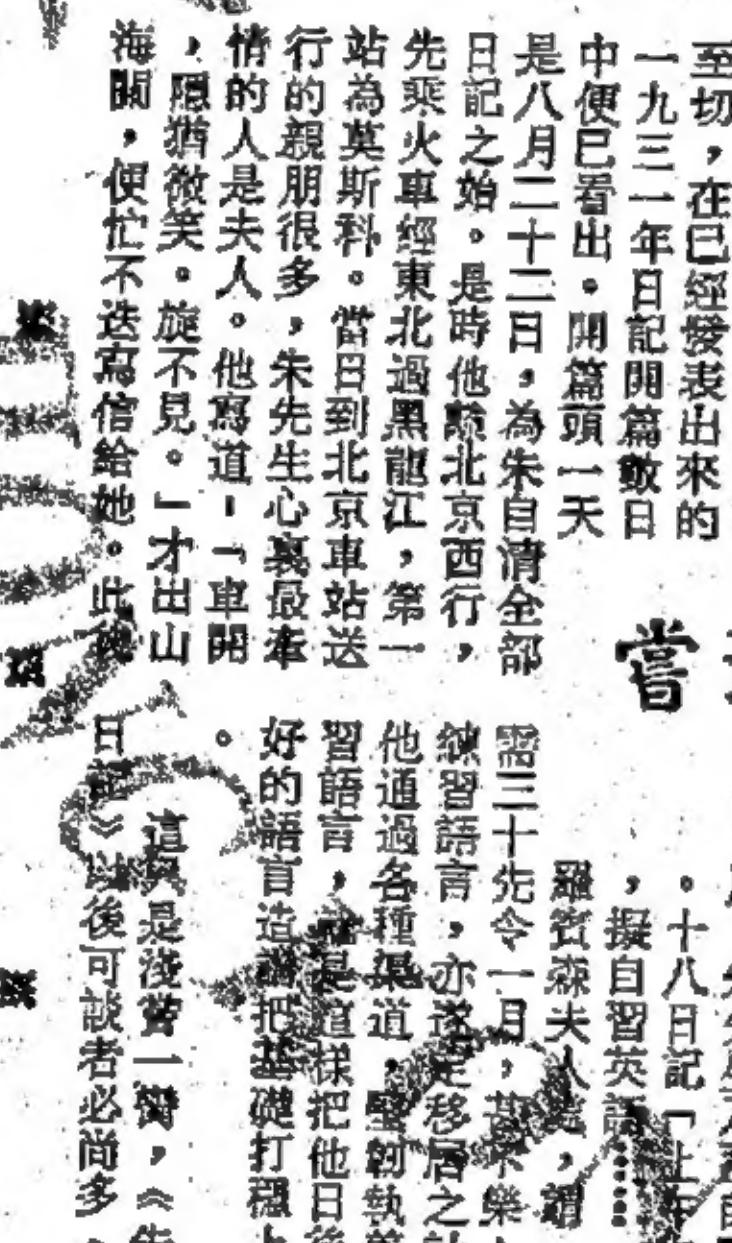 至切，在已經發表出來的
一九三一年日記開篇數日
中便已看出。開篇頭一天
是八月二十二日，為朱自清全部
日記之始。是時他離北京西行，
先乘火車經東北過黑龍江，第一
站為莫斯科。當日到北京車站送
行的親朋很多，朱先生心裏最牽
情的人是夫人。他寫道：「車開
，隱猶微笑。旋不見。」才出山
海關，便忙不迭寫信給她。此後
嘗
。十八日記「上午
，擬自習英語……
羅賓森夫人處，謂
需三十先令一月，甚不樂
練習語言，亦遂定移居之計
他通過各種渠道，堅韌執着
習語言，就是這樣把他日後
好的語言造詣把基礎打穩
。
這只是淺嘗一臠，《朱
日記》以後可談者必尚多